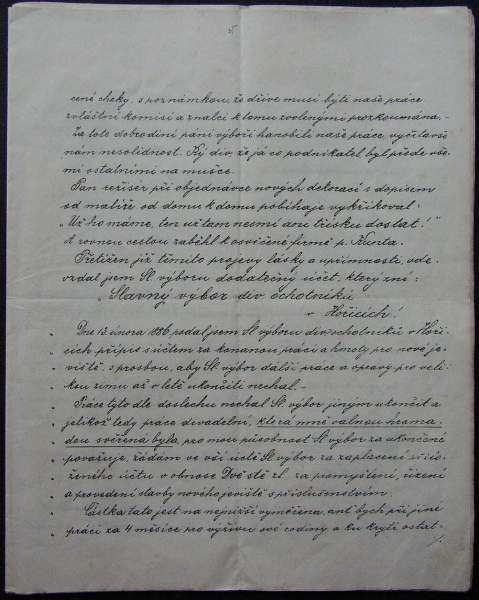 5
cené cheky, s poznámkou, že dříve musí býti naše práce
zvláštní komisí a znalci k tomu zvolenými prozkoumána.-
Za toto dobrodiní páni výboři hanobili naše práce, vyčítavše
nám nesolidnost. Ký div, že já co podnikatel byl přede vše-
mi ostatními na mušce.
Pan režiser při objednávce nových dekorací s dopisem
od malíře od domu k domu pobíhaje vykřikoval:
„Už ho máme, ten už tam nesmí ani třísku dostat!"
A rovnou cestou zaběhl k osvičené firmě p. Kunta.
Přetížen již těmito projevy lásky a upřímnosti, ode-
vzdal jsem Sl. výboru dodatečný účet, který zní:
„Slavný výbor div. ochotníků
v Hořicích!
Dne 13. února 1886 podal jsem Sl. výboru div. ochotníků v Hoři-
cích přípis s účtem za konanou práci a hmoty pro nové je-
viště, s prosbou, aby Sl. výbor další práce a opravy pro veli-
kou zimu až v létě ukončiti nechal.-
Práce tyto dle doslechu nechal Sl. výbor jiným ukončit a
jelikož tedy práce divadelní, která mně valnou hroma-
dou svěřena byla, pro mou působnost Sl. výbor za ukončené
považuje, žádám ve vší úctě Sl. výbor za zaplacení
ženého účtu v obnose Dvě stě zl. za promyšlení, řízení
a provedení stavby nového jeviště s příslušenstvím.
Částka tato jest na nejnižší vyměřena, ant bych při jiné
práci za 4 měsíce pro výživu své rodiny a ku krytí ostat-
./.